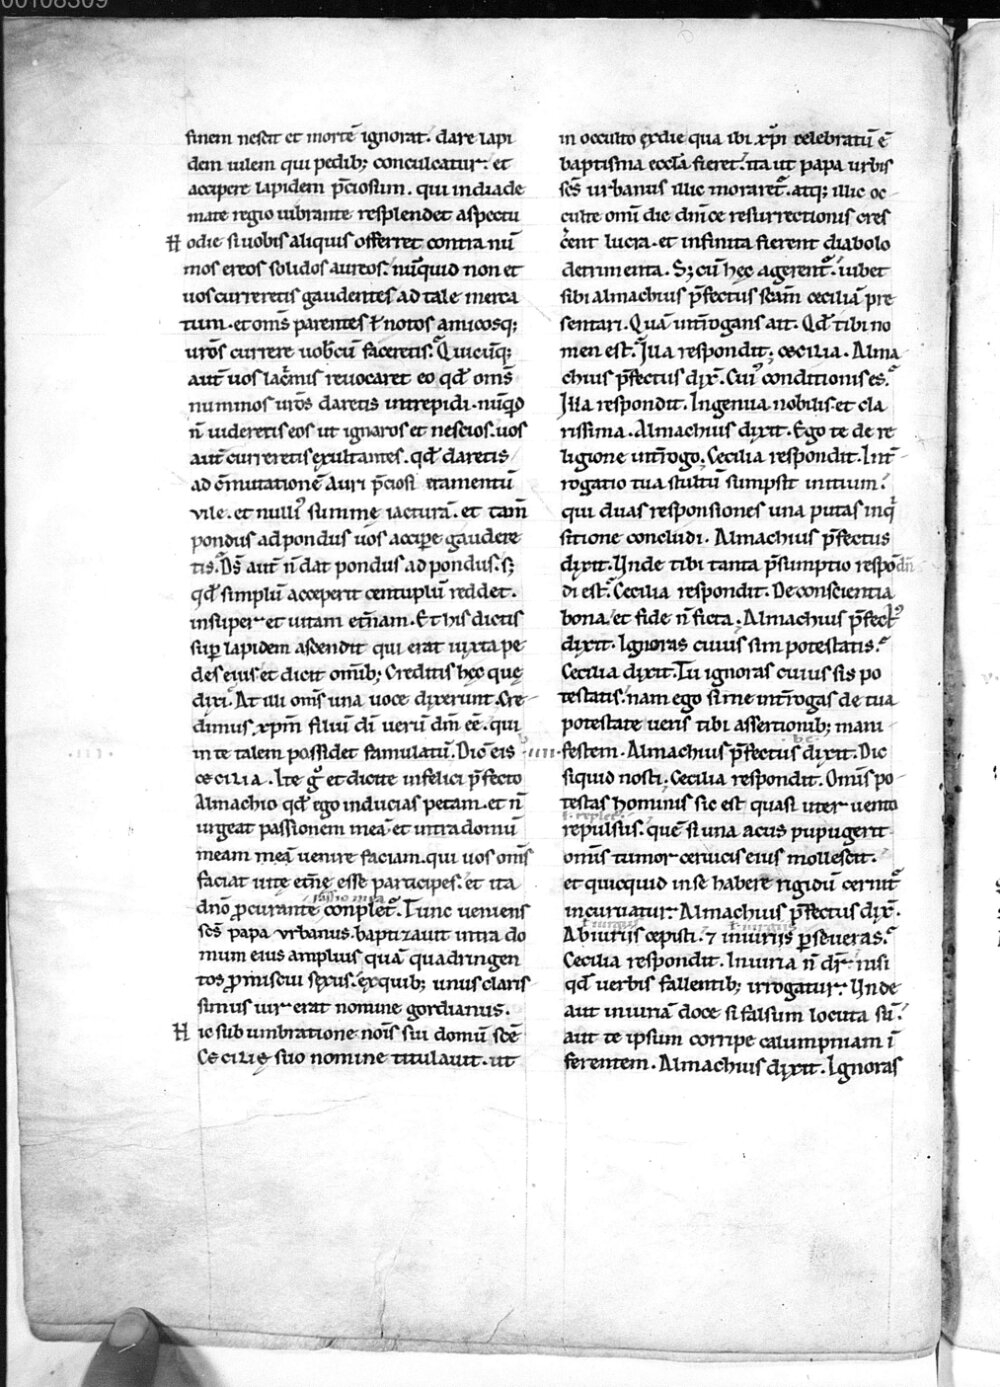 00108309
finem nescit et mortē ignorat. dare lapi
dem uilem qui pedib; conculcatur. et
accipere lapidem p̄ciosum. qui in diade
mate regio uibrante resplendet aspectu
Hodie si uobis aliquis offerret contra nū
mos ereos solidos aureos. nūquid non et
uos curreretis gaudentes ad tale merca
tum. et om̄s parentes ł notos amicosq;
uros currere uobcū faceretis. Quicūq;
aut̄ uos lac̄mis reuocaret eo qd̄ om̄s
nummos uros daretis intrepidi. nūqd
n̄ uideretis eos ut ignaros et nescios. uos
aut̄ curreretis exultantes. qd̄ daretis
ad c̄mutationē auri p̄ciosi etamentū
vile. et nulliꝰ summę iacturā. et tam̄
pondus ad pondus uos accipe gaudere
tis. Ds̄ aut̄ n̄ dat pondus ad pondus. s;
qd̄ simplū acceperit centuplū reddet.
insuper et uitam et̄nam. Et his dictis
sup lapidem ascendit qui erat iuxta pe
des eius et dicit omīb; Creditis hęc quę
dixi. At illi om̄s una uoce dixerunt. Cre
dimus xpm̄ filiuī dī uerū dm̄ eē. qui
in te talem possidet famulatū. Dic̄ eis
cecilia. Ite gͦ et dicite infelici p̄fecto
Almachio qd̄ ego inducias petam. et n̄
urgeat passionem meā. et intra domū
meam meā uenire faciam. qui uos om̄s
faciat uitę et̄nę esse participes. et ita
passio mea
dn̄o ꝓcurante conplet. Tunc ueniens
scs̄ papa vrbanus. baptizauit intra do
mum eius amplius quā quadringen
tos ꝓmiscui sexus. ex quib; unus claris
simus uir erat nomine gordianus.
Hic sub umbratione noīs sui domū scē
Cecilię suo nomine titulauit. ut
in occulto ex die qua ibi xpī celebratū ē
baptisma eccla fieret. ita ut papa urbis
scs̄ urbanus illic moraret. atq; illic oc
culte omī die dn̄ice resurrectionis cres
cent lucra. et infinita fierent diabolo
detrimenta. S; cū hęc agerent. iubet
sibi almachius p̄fectus scam ceciliā pre
sentari. Quā int̄rogans ait. Qd̄ tibi no
men est. Illa respondit. cecilia. Alma
chius p̄fectus dix̄. Cuiꝰ conditionis es.
Illa respondit. Ingenua nobilis et cla
rissima. Almachius dixit. Ego te de re
ligione int̄rogo. Cecilia respondit. Int̄
rogatio tua stultū sumpsit initium.
qui duas responsiones una putas inq
sitione concludi. Almachius p̄fectus
dixit. Unde tibi tanta p̄sumptio respōdn̄
di est. Cecilia respondit. De conscientia
bona. et fide n̄ ficta. Almachius p̄fectꝰ
dixit. Ignoras cuius sim potestatis.
Cecilia dixit. Tu ignoras cuius sis po
testatis. nam ego si me int̄rogas de tua
potestate ueris tibi assertionib; mani
festem. Almachius p̄fectus dixit. Dic
siquid nosti. Cecilia respondit. Omīs po
testas hominis sic est quasi uter uento
ł replet
repulsus. quē si una acus pupugerit
om̄is tumor ceruicis eius mollescit.
et quicquid in se habere rigidū cernit
incuruatur. Almachius p̄fectus dix̄.
Ab iuriis cepisti. ⁊ iniuriis ꝑseueras.
Cecilia respondit. Iniuria n̄ dr̄. nisi
qd̄ uerbis fallentib; irrogatur. Unde
aut iniuriā doce si falsum locuta sū.
aut te ipsum corripe calumpniam ī
ferentem. Almachius dixit. Ignoras